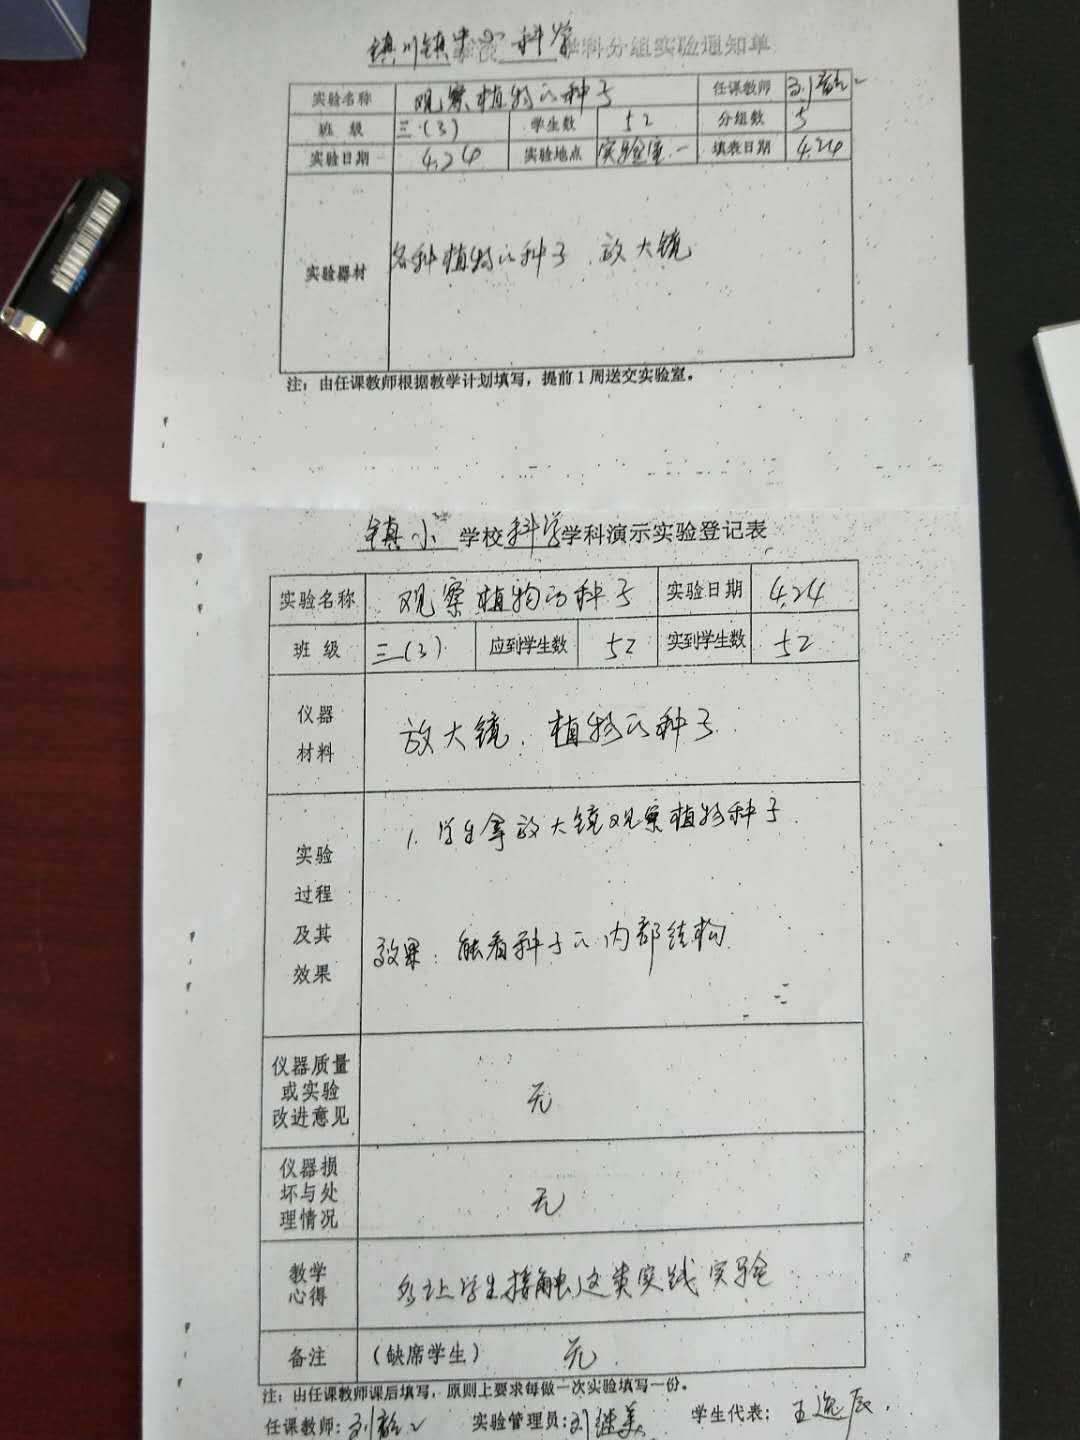 镇川镇中小 科学 学科分组实验通知单
实验名称 观察植物的种子 任课教师
班 级 三(3) 学生数 52 分组数 5
实验日期 4.24 实验地点 实验室一 填表日期 4.24
实验器材 各种植物的种子、放大镜
注：由任课教师根据教学计划填写，提前1周送交实验室。
镇小 学校 科学 学科演示实验登记表
实验名称 观察植物的种子 实验日期 4.24
班 级 三(3) 应到学生数 52 实到学生数 52
仪器
材料
放大镜、植物的种子
实验
过程
及其
效果
1. 学生拿放大镜观察植物种子
效果：能看种子的内部结构
仪器质量
或实验
改进意见
无
仪器损
坏与处
理情况
无
教学
心得
多让学生接触这类实践实验
备注 (缺席学生) 无
注：由任课教师课后填写，原则上要求每做一次实验填写一份。
任课教师: 实验管理员:刘继美 学生代表: 王逸辰